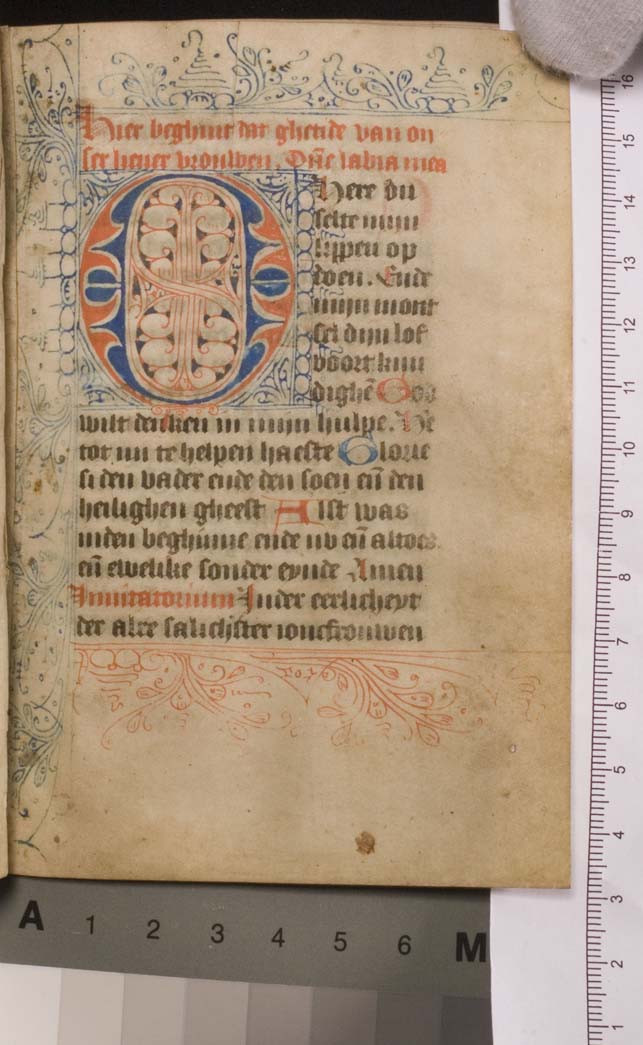 Hier beghint dat ghetide van on
ser liever vrouwen. Dn̄e labia mea
Here du
selte mijn
lippen op
doen. Ende
mijn mont
sel dijn lof
voort kun
dighē God
wilt denken in mijn hulpe. He
tot mi te helpen haeste Glorie
si den vader ende den soen eñ den
heilighen gheest Alst was
inden beghinne ende nv eñ altoes
eñ ewelike sonder eynde Amen
Inuitatorium In der eerlicheyt
der alre salichster ioncfrouwen
A 1 2 3 4 5 6 M
16
15
14
13
12
11
10
9
8
7
6
5
4
3
2
1